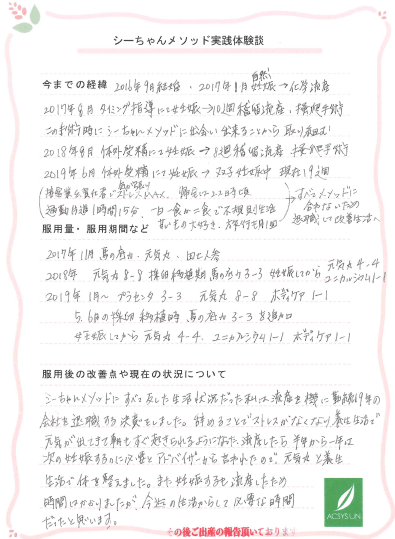 シーちゃんメソッド実践体験談
今までの経緯 2016年9月結婚・2017年1月自然妊娠→化学流産
2017年8月 タイミング指導にて妊娠→10週稽留流産、掻爬手術
この手術時にシーちゃんメソッドに出会い出来ることから取り組む
2018年8月 体外受精にて妊娠→8週稽留流産 掻爬手術
2019年6月 体外受精にて妊娠→双子妊娠中 現在19週
ストレスMAX、帰宅は22時頃
通勤片道1時間15分、一日一食か二食で不規則生活
甘いもの大好き、旅行毎月1回
すべてメソッドに
合わないため
退職して改善生活へ
服用量・服用期間など
2017年11月 馬の胎力、元気丸、田七人参
2018年 元気丸8-8 採卵移植期馬の胎力3-3 妊娠してから元気丸4-4
ユニカルシウム1-1
2019年1月〜 プラセンタ3-3 元気丸8-8 ボディケア1-1
5、6月の採卵移植時 馬の胎力3-3を追加
妊娠してから元気丸4-4、ユニカルシウム1-1 ボディケア1-1
服用後の改善点や現在の状況について
シーちゃんメソッドにすべて反した生活状況だった私は、流産を機に勤続19年の
会社を退職する決意をしました。辞めることでストレスがなくなり養生生活で
元気が出てきて朝もすぐ起きられるようになった。流産したら半年から一年は
次の妊娠するのに必要とアドバイザーからも言われたので、元気丸と養生
生活で体を整えました。また妊娠するも流産したため
時間はかかりましたが、今迄の生活からして必要な時間
だったと思います。
ACSYSUN
その後ご出産の報告頂いております